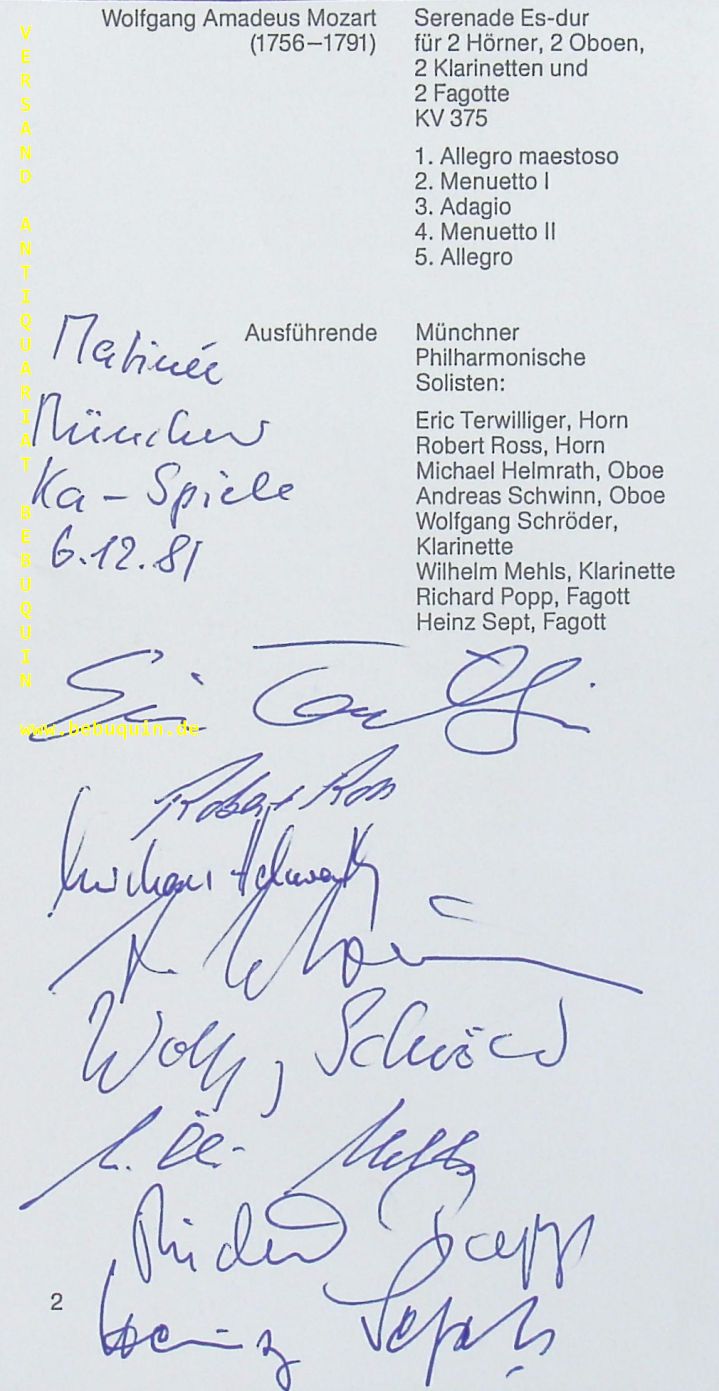 Wolfgang Amadeus Mozart
(1756–1791)
Serenade Es-dur
für 2 Hörner, 2 Oboen,
2 Klarinetten und
2 Fagotte
KV 375
1. Allegro maestoso
2. Menuetto I
3. Adagio
4. Menuetto II
5. Allegro
Ausführende
Münchner
Philharmonische
Solisten:
Eric Terwilliger, Horn
Robert Ross, Horn
Michael Helmrath, Oboe
Andreas Schwinn, Oboe
Wolfgang Schröder,
Klarinette
Wilhelm Mehls, Klarinette
Richard Popp, Fagott
Heinz Sept, Fagott
Matinée
Münchner
Ka - Spiele
6.12.81
Robert Ross
Richard Popp
Heinz Sept
2
VERSAND ANTIQUARIAT BEBUQUIN
www.bebuquin.de